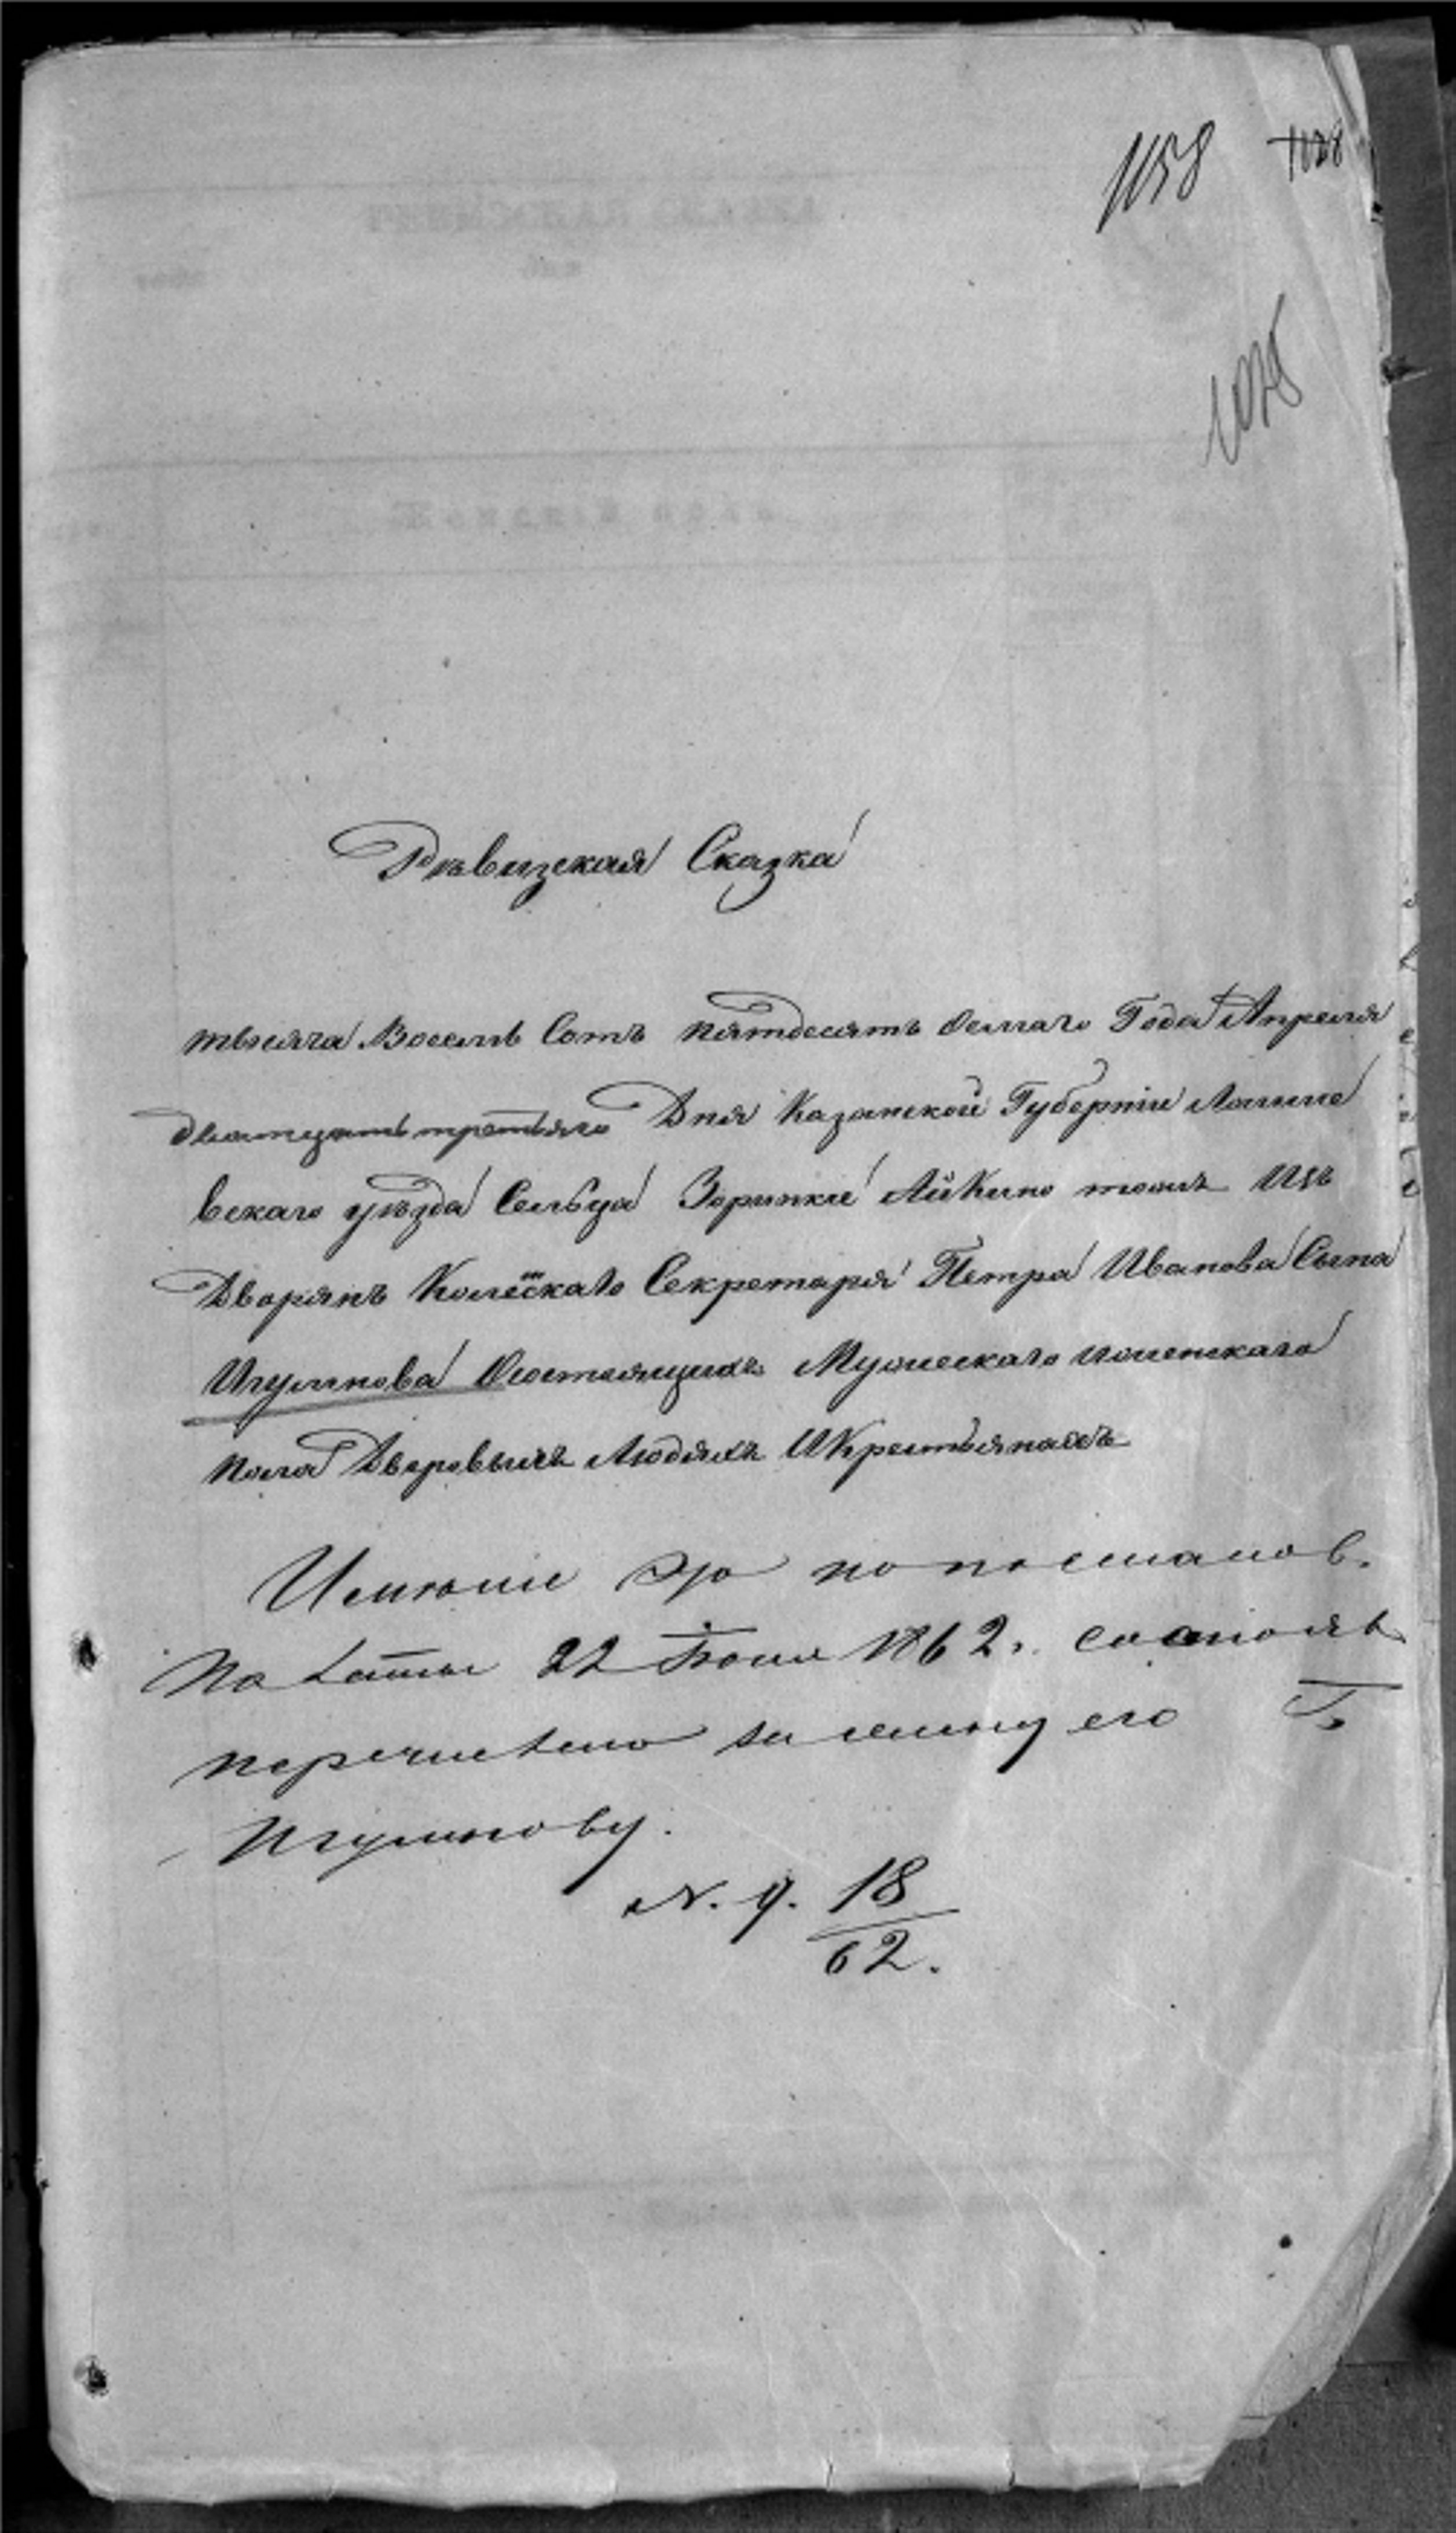 1158 1128
1028
Рѣвизская Сказка
тысяча Восемь Сотъ пятдесятъ осмаго Года Апреля
дватцать третьяго Дня Казанской Губерніи Лаише
вскаго уѣзда Сельца Зоринкіе Айкино тожъ Изъ
Дворянъ Колежскаго Секретаря Петра Иванова Сына
Игумнова Осостоящихъ Мужескаго иженскаго
пола Дворовыхъ Людяхъ ИКрестьянахъ
Имѣніе это по постанов.
Палаты 22 Іюня 1862 г. состояв
перечислено за жену его Г.
Игумнову.
N. 9. 18
62.